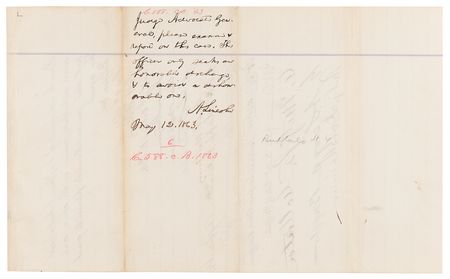 Judge Advocate Gen-
eral, please examine &
report on this case. The
officer only seeks an
honorable discharge,
& to avoid a dishon-
orable one.
A. Lincoln
May 12. 1863.
6
C. 588. c. B. 1863
Buffalo N.Y.